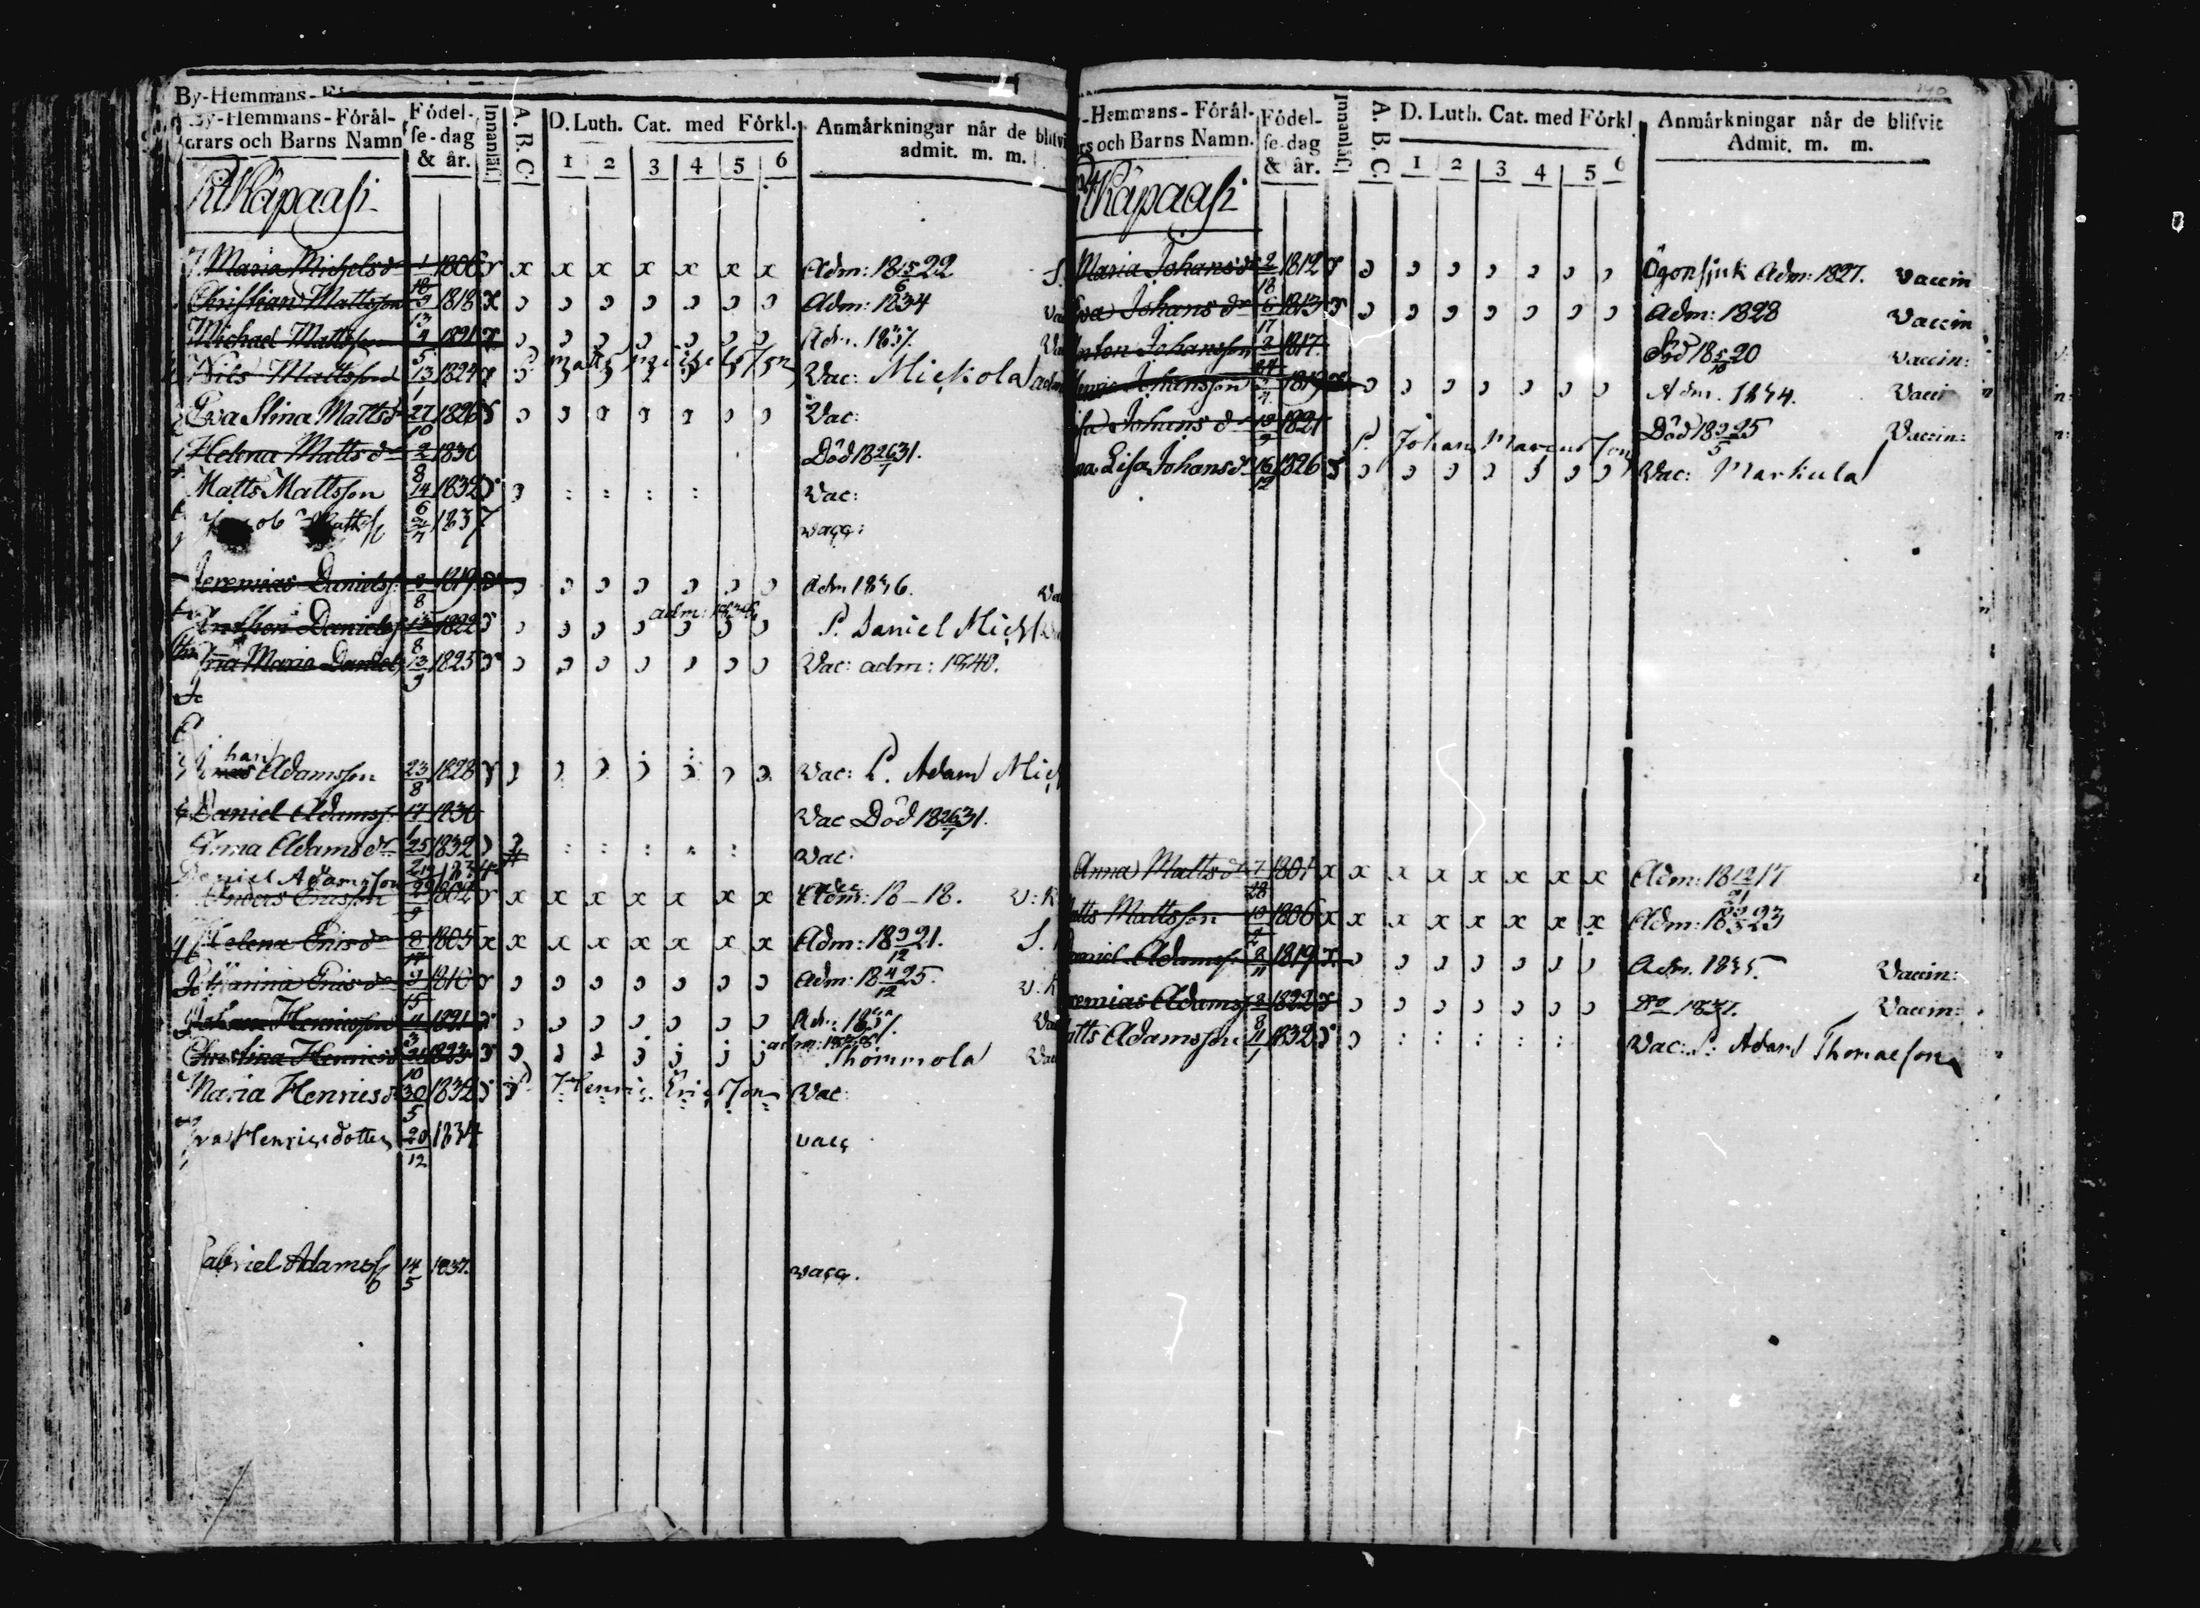 By-Hemmans-
By-Hemmans-Förål-
drars och Barns Namn
Födel-
se-dag
& år.
Innanläs.
A. B. C.
D. Luth. Cat. med Förkl.
1 2 3 4 5 6
Anmärkningar når de blifvit
admit. m. m.
Pitkäpaasi
Maria Michelsdr 1/18 1806 x x x x x x x Adm: 18 15/6 22
Christian Mattsson 9/13 1818 x Adm: 1834
Michael Mattsson 4/5 1821 Adm. 1837.
Nils Mattsson 13/1 1824 P. Matts Michelsson Vac: Mickola
Eva Stina Mattsdr 27/10 1826 Vac:
Helena Mattsdr 2/8 1830 Död 18 26/1 31.
Matts Mattsson 14/6 1832 : : : : Vac:
1837 vacc:
Jeremias Danielss. 1819 Adm 1836.
Danielss. 13/8 1822 adm: P. Daniel Mich
Maria Daniels 13/9 1825 Vac: adm: 1840.
han
Adamsson 23/8 1828 Vac: P. Adam Mich
Daniel Adamss. 17 1830 Vac Död 18 26/1 31.
Anna Adamsdr 25 1832 : : : : : Vac:
Daniel Adamsson
Ericsson 29/9 1802 x x x x x x x Adm: 18-18. v: K
Helena Ericsdr 8/17 1805 x x x x x x x x Adm: 18 9/12 21. S.
Ericsdr 9/15 1810 Adm: 18 4/12 25. v: K
Johan Henricsson 11 1821 Adm: 1837.
Christina Henricsdr 1823 Thommola
Maria Henricsdr 30/5 1832 P. Henric Ericsson Vac:
Eva Henricsdotter 20/12 1834 vacc
Gabriel Adamss 14/5 1837. vacc.
-Hemmans-Förål-
rs och Barns Namn.
Födel-
se-dag
& år.
Innanläs.
A. B. C.
D. Luth. Cat. med Förkl
1 2 3 4 5 6
Anmärkningar når de blifvit
Admit. m. m.
Pitkäpaasi
Maria Johansdr 2/18 1812 Ögonsjuk Adm: 1827. Vaccin
Eva Johansdr 6/17 1813 Adm: 1828 Vaccin
Anton Johansson 2/24 1817. Död 18 5/10 20 Vaccin:
Henric Johansson 1819 Adm. 1834. Vaccin
Johansdr 1821 Död 18 9/5 25 Vaccin:
Lisa Johansdr 16/12 1826 P. Johan Marcusson Vac: Markula
Anna Mattsdr 7/28 1801 x x x x x x x x Adm: 18 12/21 17
Matts Mattsson 19/2 1806 x x x x x x x x Adm: 18 23
Daniel Adamss. 8/11 1819 Adm. 1835. Vaccin:
Jeremias Adamss 2/8 1822 do 1837. Vaccin:
Matts Adamsson 11/1 1832 : : : : : Vac: P: Adam Thomasson